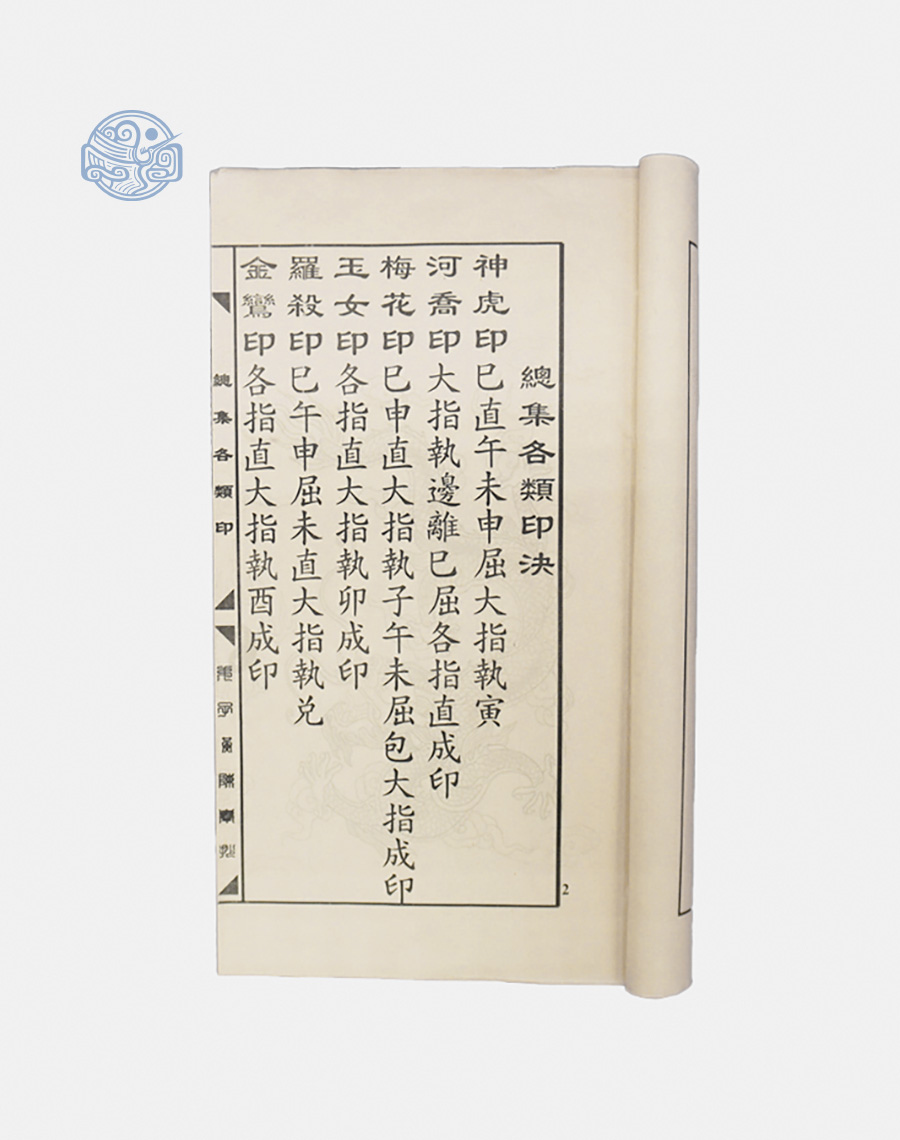 總集各類印決
神虎印巳直午未申屈大指執寅
河喬印大指執邊離巳屈各指直成印
梅花印巳申直大指執子午未屈包大指成印
玉女印各指直大指執卯成印
羅殺印巳午申屈未直大指執兌
金鸞印各指直大指執酉成印
總集各類印
2